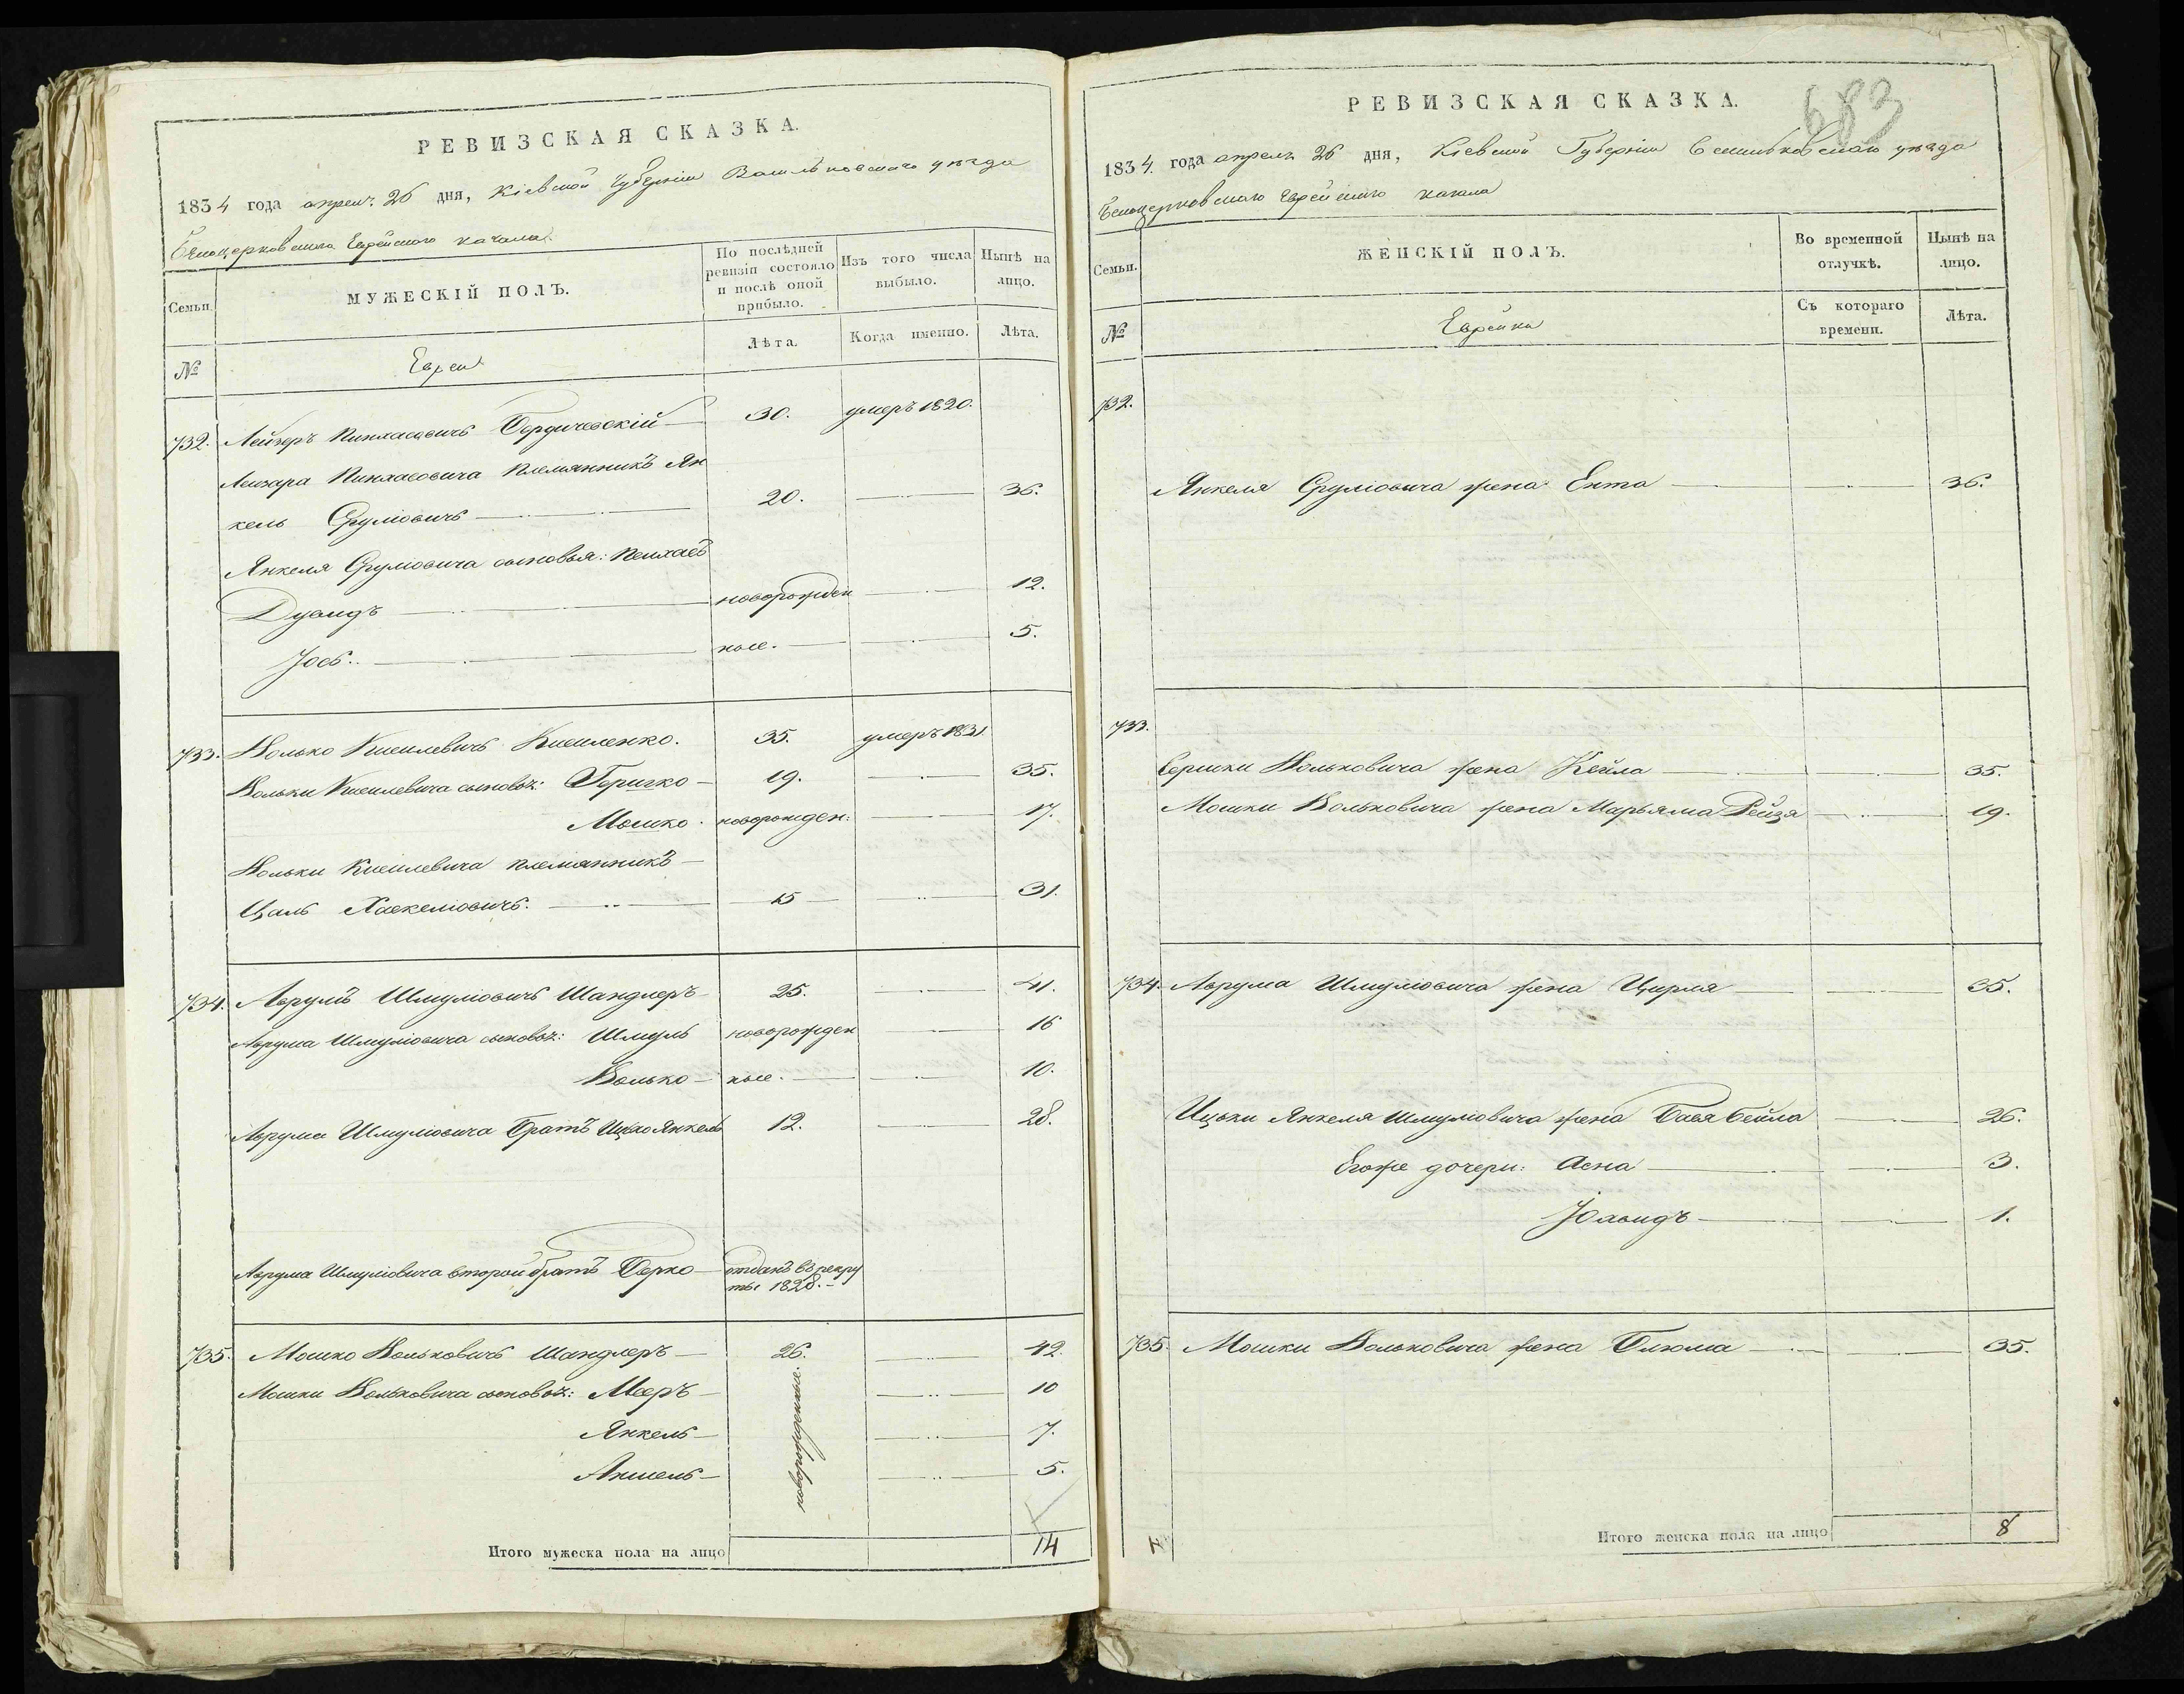 РЕВИЗСКАЯ СКАЗКА.
1834 года апреля 26 дня, Кіевской Губерніи Васильковского уезда
Белоцерковского Еврейского кагала
Семьи.
МУЖЕСКІЙ ПОЛЪ.
По послѣдней ревизіи состояло и послѣ оной прибыло.
Изъ того числа выбыло.
Нынѣ на лицо.
№
Евреи
Лѣта.
Когда именно.
Лѣта.
732. Лейзеръ Пинхасовичъ Бердичевскій 30. умеръ 1820.
Лейзера Пинхасовича племянникъ Ян
кель Сруліовичъ 20. 36.
Янкеля Сруліовича сыновья: Пинхасъ
Дувидъ новорожден 12.
Іось ные. 5.
733. Волько Кисилевичъ Кисиленко. 35. умеръ 1831
Вольки Кисилевича сыновья: Гершко 19. 35.
Мошко новорожден: 17.
Вольки Кисилевича племянникъ
Цаль Хаскеліовичъ. 15 31.
734. Аврумъ Шмуліовичъ Шандлеръ 25. 41.
Аврума Шмуліовича сыновья: Шмуль новорожден 16
Волько ные. 10.
Аврума Шмуліовича Братъ Ицко Янкель 12. 28.
Аврума Шмуліовича второй братъ Берко отданъ въ рекру
ты 1828.
735. Мошко Вольковичъ Шандлеръ 26. 42.
Мошки Вольковича сыновья: Мееръ новорожденные 10
Янкель 7.
Аншель 5.
Итого мужеска пола на лицо 14
683
РЕВИЗСКАЯ СКАЗКА.
1834. года апреля 26 дня, Кіевской Губерніи Васильковского уезда
Белоцерковского Еврейского кагала
Семьи.
ЖЕНСКІЙ ПОЛЪ.
Во временной отлучкѣ.
Нынѣ на лицо.
№
Еврейки
Съ котораго времени.
Лѣта.
732.
Янкеля Сруліовича жена Ента 36.
733.
Гершки Вольковича жена Кейла 35.
Мошки Вольковича жена Марьяма Рейзя 19.
734. Аврума Шмуліовича жена Цирля 35.
Ицьки Янкеля Шмуліовича жена Бася Бейла 26.
Егоже дочери: Асна 3.
1.
735. Мошки Вольковича жена Блюма 35.
Итого женска пола на лицо 8